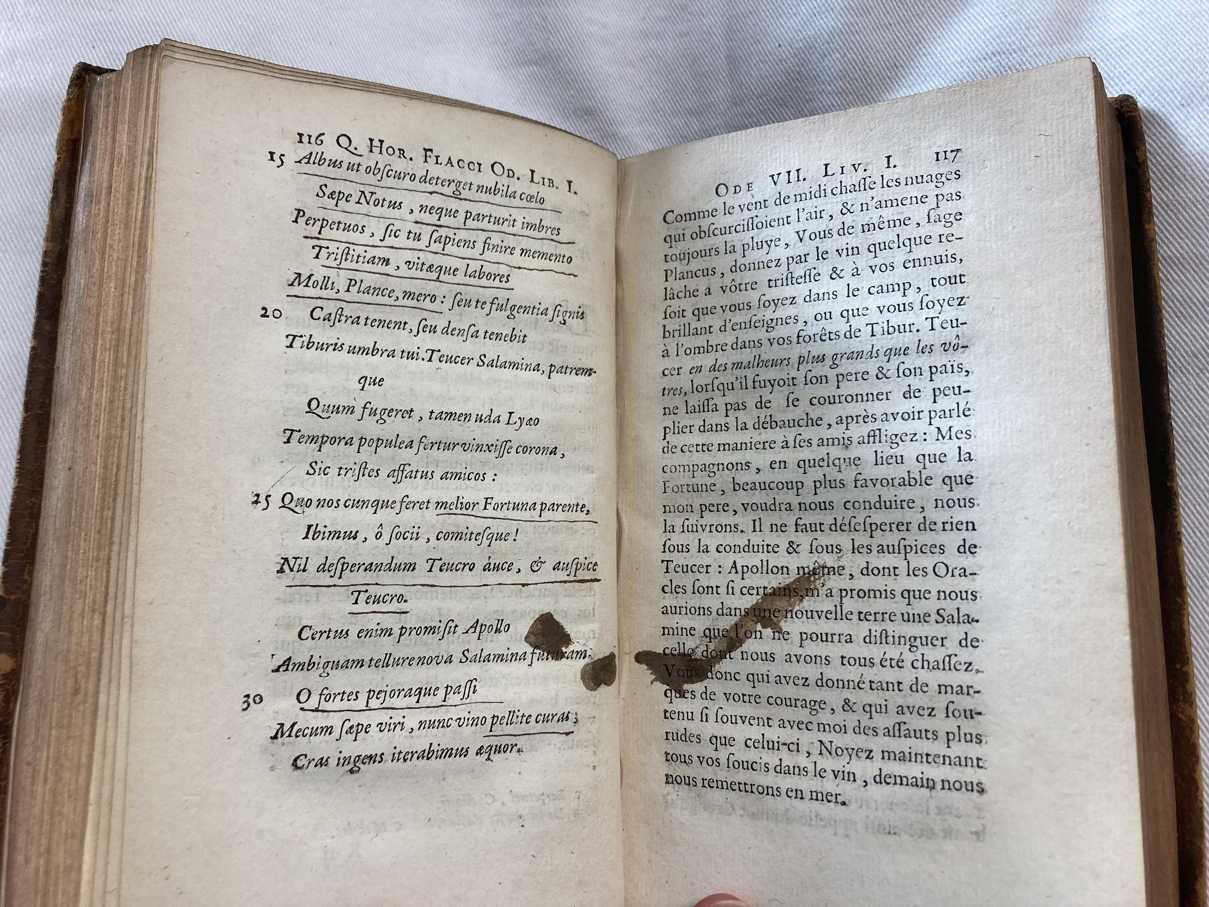 116 Q. HOR. FLACCI OD. LIB. I.
15 Albus ut obſcuro deterget nubila cœlo
Sæpe Notus, neque parturit imbres
Perpetuos, ſic tu ſapiens finire memento
Triſtitiam, vitæque labores
Molli, Plance, mero: ſeu te fulgentia ſignis
20 Caſtra tenent, ſeu denſa tenebit
Tiburis umbra tui. Teucer Salamina, patrem-
que
Quum fugeret, tamen uda Lyæo
Tempora populea fertur vinxiſſe corona,
Sic triſtes affatus amicos:
25 Quo nos cunque feret melior Fortuna parente,
Ibimus, ô ſocii, comiteſque!
Nil deſperandum Teucro duce, & auſpice
Teucro.
Certus enim promiſit Apollo
Ambiguam tellure nova Salamina futuram.
30 O fortes pejoraque paſſi
Mecum ſæpe viri, nunc vino pellite curas;
Cras ingens iterabimus æquor.
ODE VII. LIV. I. 117
Comme le vent de midi chaſſe les nuages
qui obſcurciſſoient l'air, & n'amene pas
toujours la pluye, Vous de même, ſage
Plancus, donnez par le vin quelque re-
lâche à vôtre triſteſſe & à vos ennuis,
ſoit que vous ſoyez dans le camp, tout
brillant d'enſeignes, ou que vous ſoyez
à l'ombre dans vos forêts de Tibur. Teu-
cer en des malheurs plus grands que les vô-
tres, lorſqu'il fuyoit ſon pere & ſon païs,
ne laiſſa pas de ſe couronner de peu-
plier dans la débauche, après avoir parlé
de cette maniere à ſes amis affligez: Mes
compagnons, en quelque lieu que la
Fortune, beaucoup plus favorable que
mon pere, voudra nous conduire, nous
la ſuivrons. Il ne faut déſeſperer de rien
ſous la conduite & ſous les auſpices de
Teucer: Apollon même, dont les Ora-
cles ſont ſi certains, m'a promis que nous
aurions dans une nouvelle terre une Sala-
mine que l'on ne pourra diſtinguer de
celle dont nous avons tous été chaſſez.
Vous donc qui avez donné tant de mar-
ques de votre courage, & qui avez ſou-
tenu ſi ſouvent avec moi des aſſauts plus
rudes que celui-ci, Noyez maintenant
tous vos ſoucis dans le vin, demain nous
nous remettrons en mer.